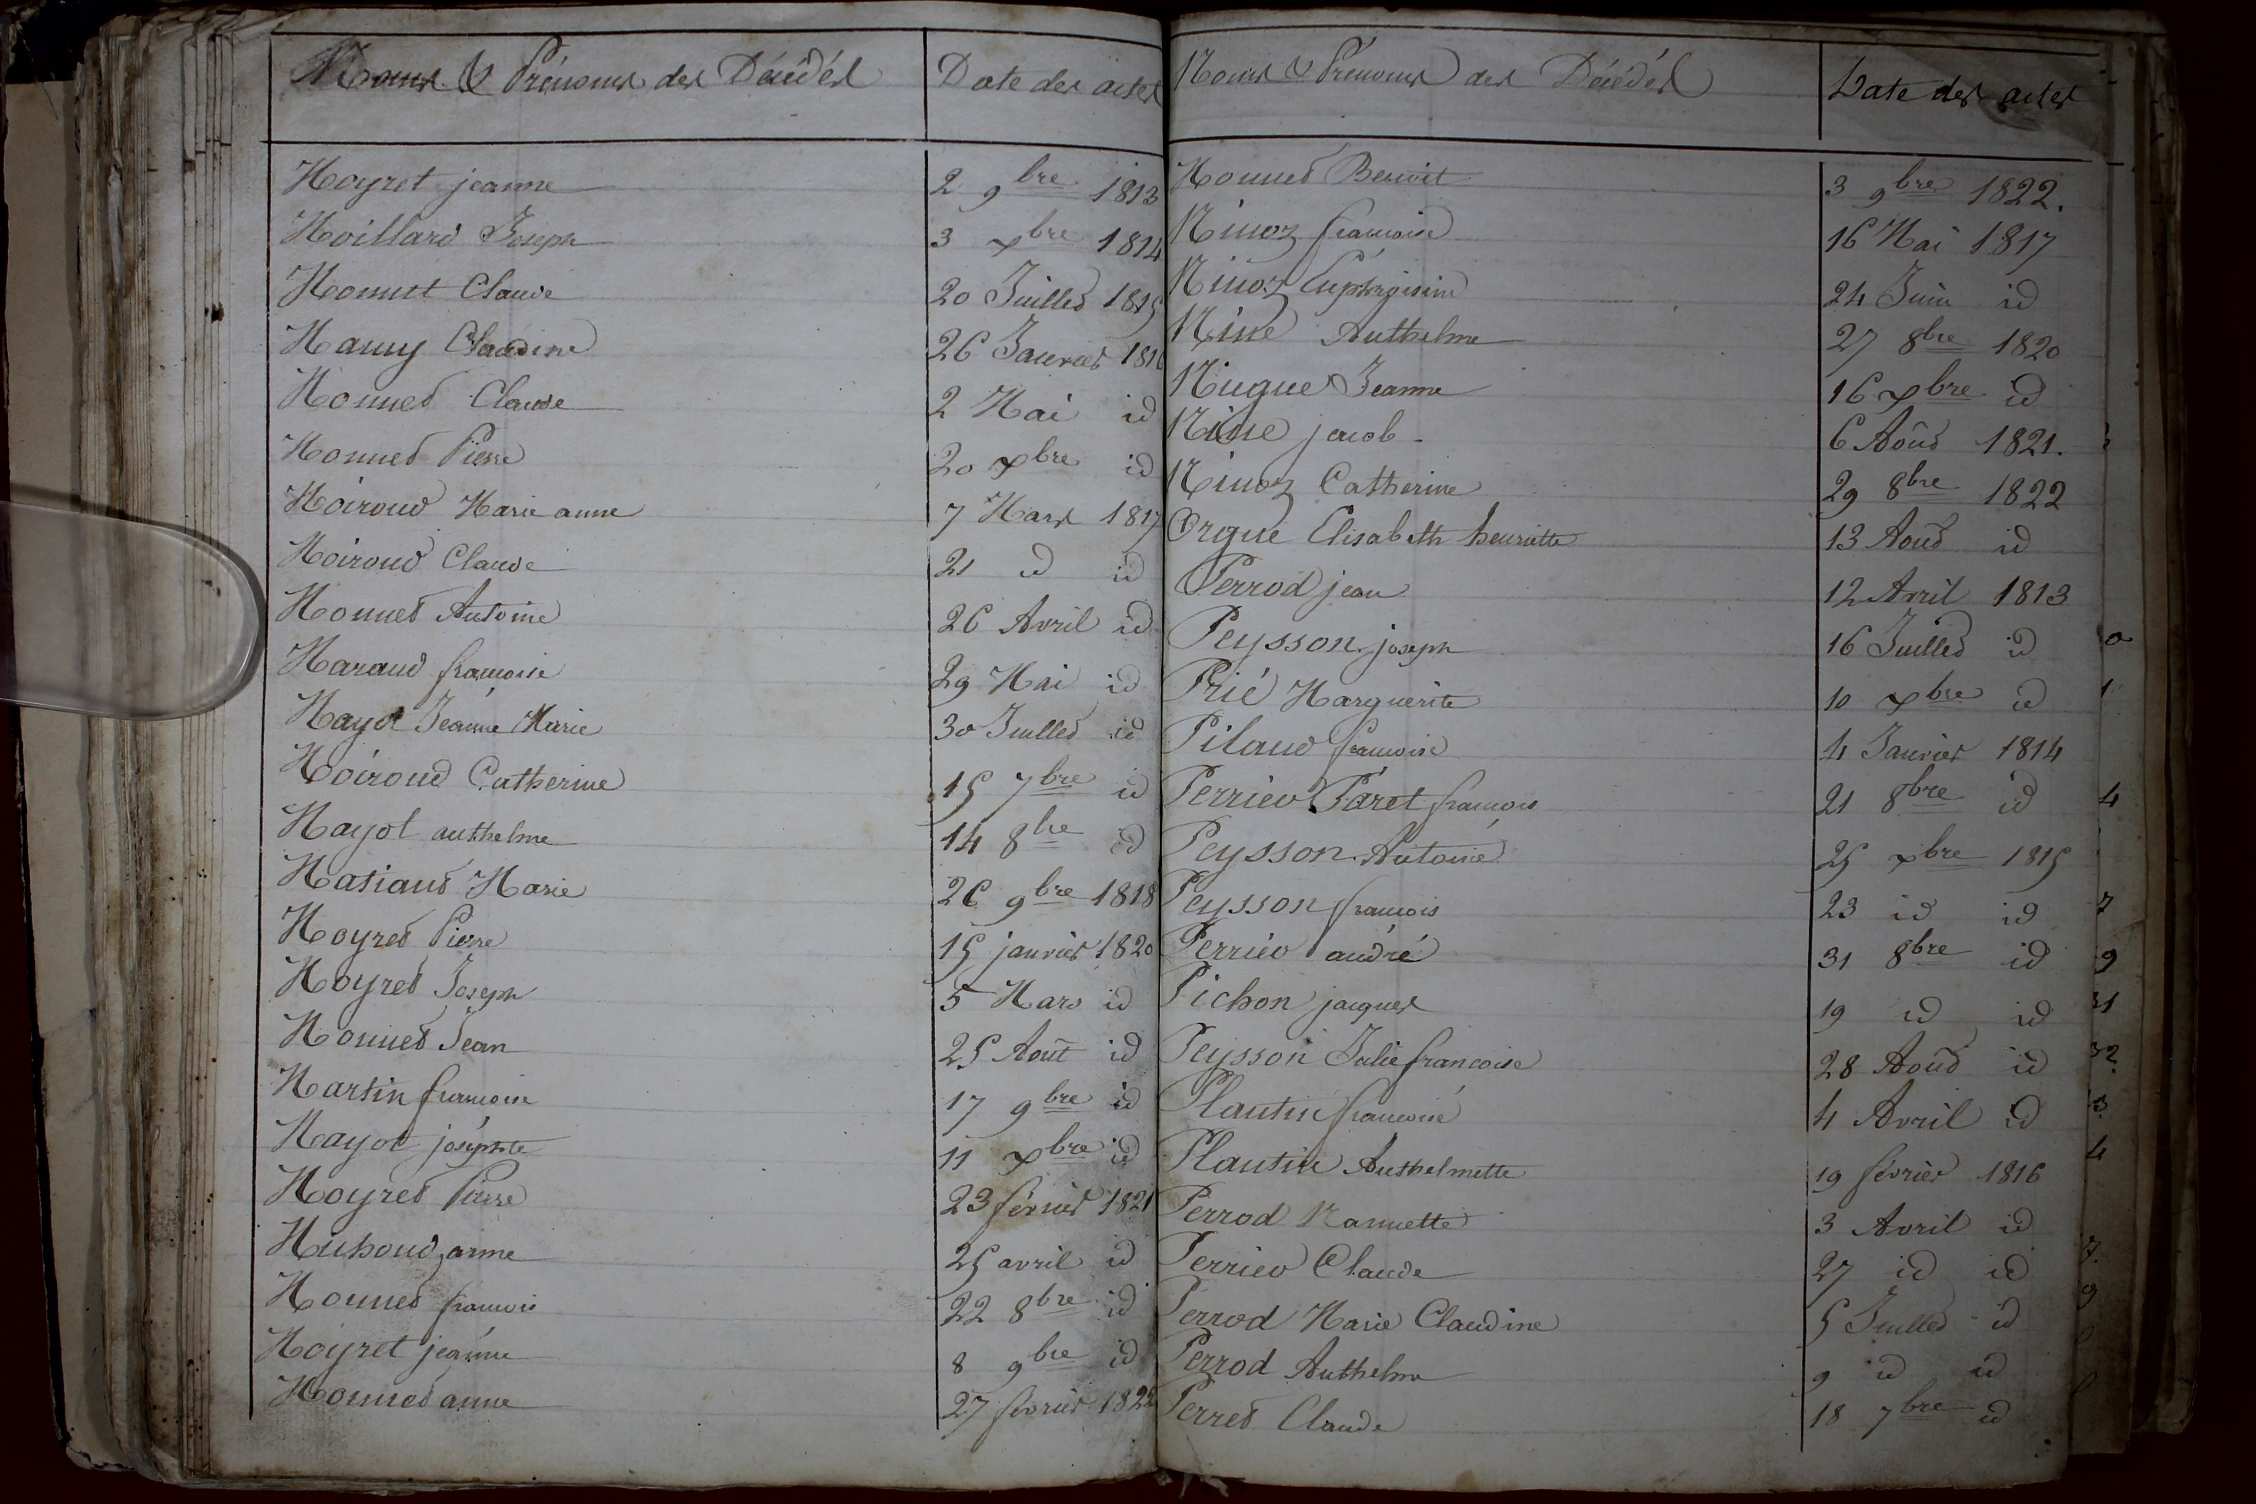 Noms & Prénoms des Décédés Date des actes
Moyret jeanne 2 9bre 1813
Moillard Joseph 3 xbre 1814
Monnet Claude 20 Juillet 1815
Mamy Claudine 26 Janvier 1816
Monnet Claude 2 Mai id
Monnet Pierre 20 xbre id
Moiroud Marie anne 7 Mars 1817
Moiroud Claude 21 id id
Monnet Antoine 26 Avril id
Maraud francoise 29 Mai id
Mayot Jeanne Marie 30 Juillet id
Moiroud Catherine 15 7bre id
Mayot anthelme 14 8bre id
Masiaut Marie 26 9bre 1818
Moyret Pierre 15 janvier 1820
Moyret Joseph 5 Mars id
Monnet Jean 25 Aout id
Martin francoise 17 9bre id
Mayot joséphte 11 xbre id
Moyret Pierre 23 février 1821
Michoud anne 25 avril id
Monnet francois 22 8bre id
Moyret jeanne 8 9bre id
Monnet anne 27 février 1822
Noms & Prénoms des Décédés Date des actes
Monnet Benoit 3 9bre 1822.
Ninoz francoise 16 Mai 1817
Ninoz 24 Juin id
Nine Anthelme 27 8bre 1820
Nugue Jeanne 16 xbre id
Nine jacob 6 Aoûst 1821.
Ninoz Catherine 29 8bre 1822
Orgue Elisabeth henriette 13 Aoust id
Perrod jean 12 Avril 1813
Peysson joseph 16 Juillet id
Prié Marguerite 10 xbre id
Pilaud francoise 4 Janvier 1814
Perrier Paret francois 21 8bre id
Peysson Antoine 25 xbre 1815
Peysson francois 23 id id
Perrier andré 31 8bre id
Pichon jacques 19 id id
Peysson Julie francoise 28 Aoust id
Plantin francoise 4 Avril id
Plantin Anthelmette 19 février 1816
Perrod Nannette 3 Avril id
Perrier Claude 27 id id
Perrod Marie Claudine 5 Juillet id
Perrod Anthelme 9 id id
Perret Claude 18 7bre id